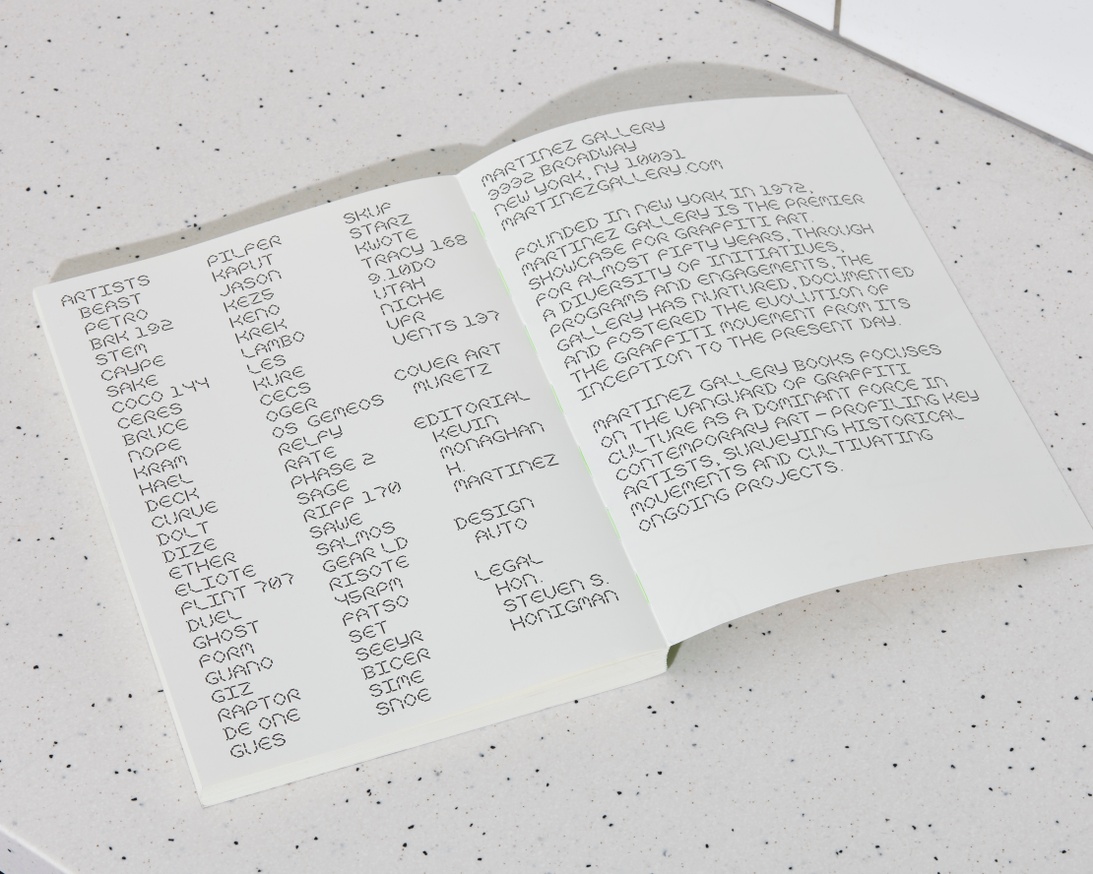 ARTISTS
BEAST
PETRO
BRK 192
STEM
CAYPE
SAKE
COCO 144
CERES
BRUCE
NOPE
KRAM
HAEL
DECK
CURVE
DOLT
DIZE
ETHER
ELIOTE
FLINT 707
DUEL
GHOST
FORM
GUANO
GIZ
RAPTOR
DE ONE
GUES
PILFER
KAPUT
JASON
KEZS
KENO
KREK
LAMBO
LES
KURE
CECS
OGER
OS GEMEOS
RELFY
RATE
PHASE 2
SAGE
RIFF 170
SAWE
SALMOS
GEAR LD
RISOTE
45RPM
FATSO
SET
SEEYR
BICER
SIME
SNOE
SKUF
STARZ
KWOTE
TRACY 168
9.10DO
UTAH
NICHE
VFR
VENTS 137
COVER ART
MURETZ
EDITORIAL
KEVIN
MONAGHAN
H.
MARTINEZ
DESIGN
AUTO
LEGAL
HON.
STEVEN S.
HONIGMAN
MARTINEZ GALLERY
3332 BROADWAY
NEW YORK, NY 10031
MARTINEZGALLERY.COM
FOUNDED IN NEW YORK IN 1972,
MARTINEZ GALLERY IS THE PREMIER
SHOWCASE FOR GRAFFITI ART.
FOR ALMOST FIFTY YEARS, THROUGH
A DIVERSITY OF INITIATIVES,
PROGRAMS AND ENGAGEMENTS, THE
GALLERY HAS NURTURED, DOCUMENTED
AND FOSTERED THE EVOLUTION OF
THE GRAFFITI MOVEMENT FROM ITS
INCEPTION TO THE PRESENT DAY.
MARTINEZ GALLERY BOOKS FOCUSES
ON THE VANGUARD OF GRAFFITI
CULTURE AS A DOMINANT FORCE IN
CONTEMPORARY ART – PROFILING KEY
ARTISTS, SURVEYING HISTORICAL
MOVEMENTS AND CULTIVATING
ONGOING PROJECTS.